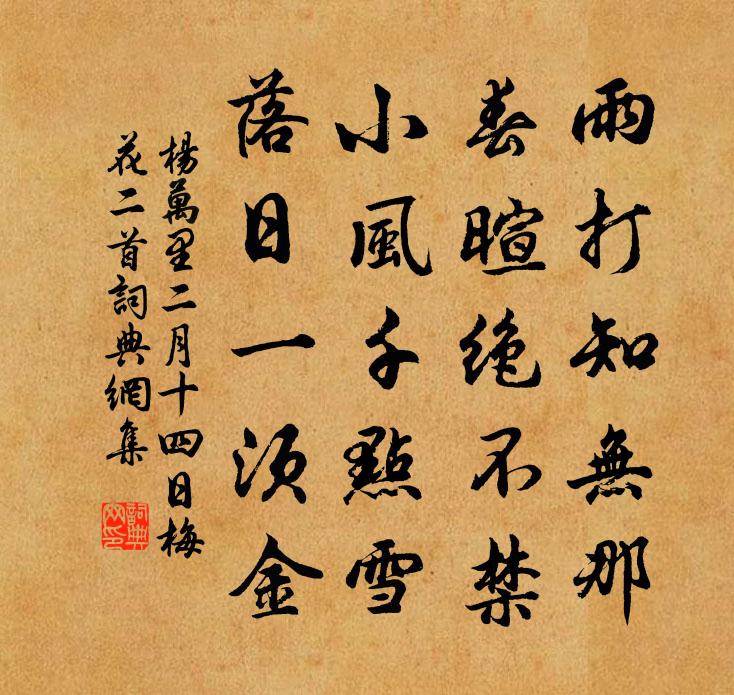 雨打知無那
春暄絶不禁
小風千點雪
落日一須金
楊萬里二月十四日梅
花二首詞典網集
詞典
网印